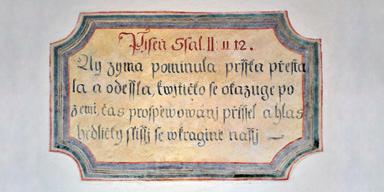 Pjseň Ssal. II: 11 12.
Ay zyma pominula prsska přesta
la a odessla, kwjtičko se okazuge po
zemi, čas prospěwowanj přissel a hlas
hrdličky slissj se w kragině nassj —